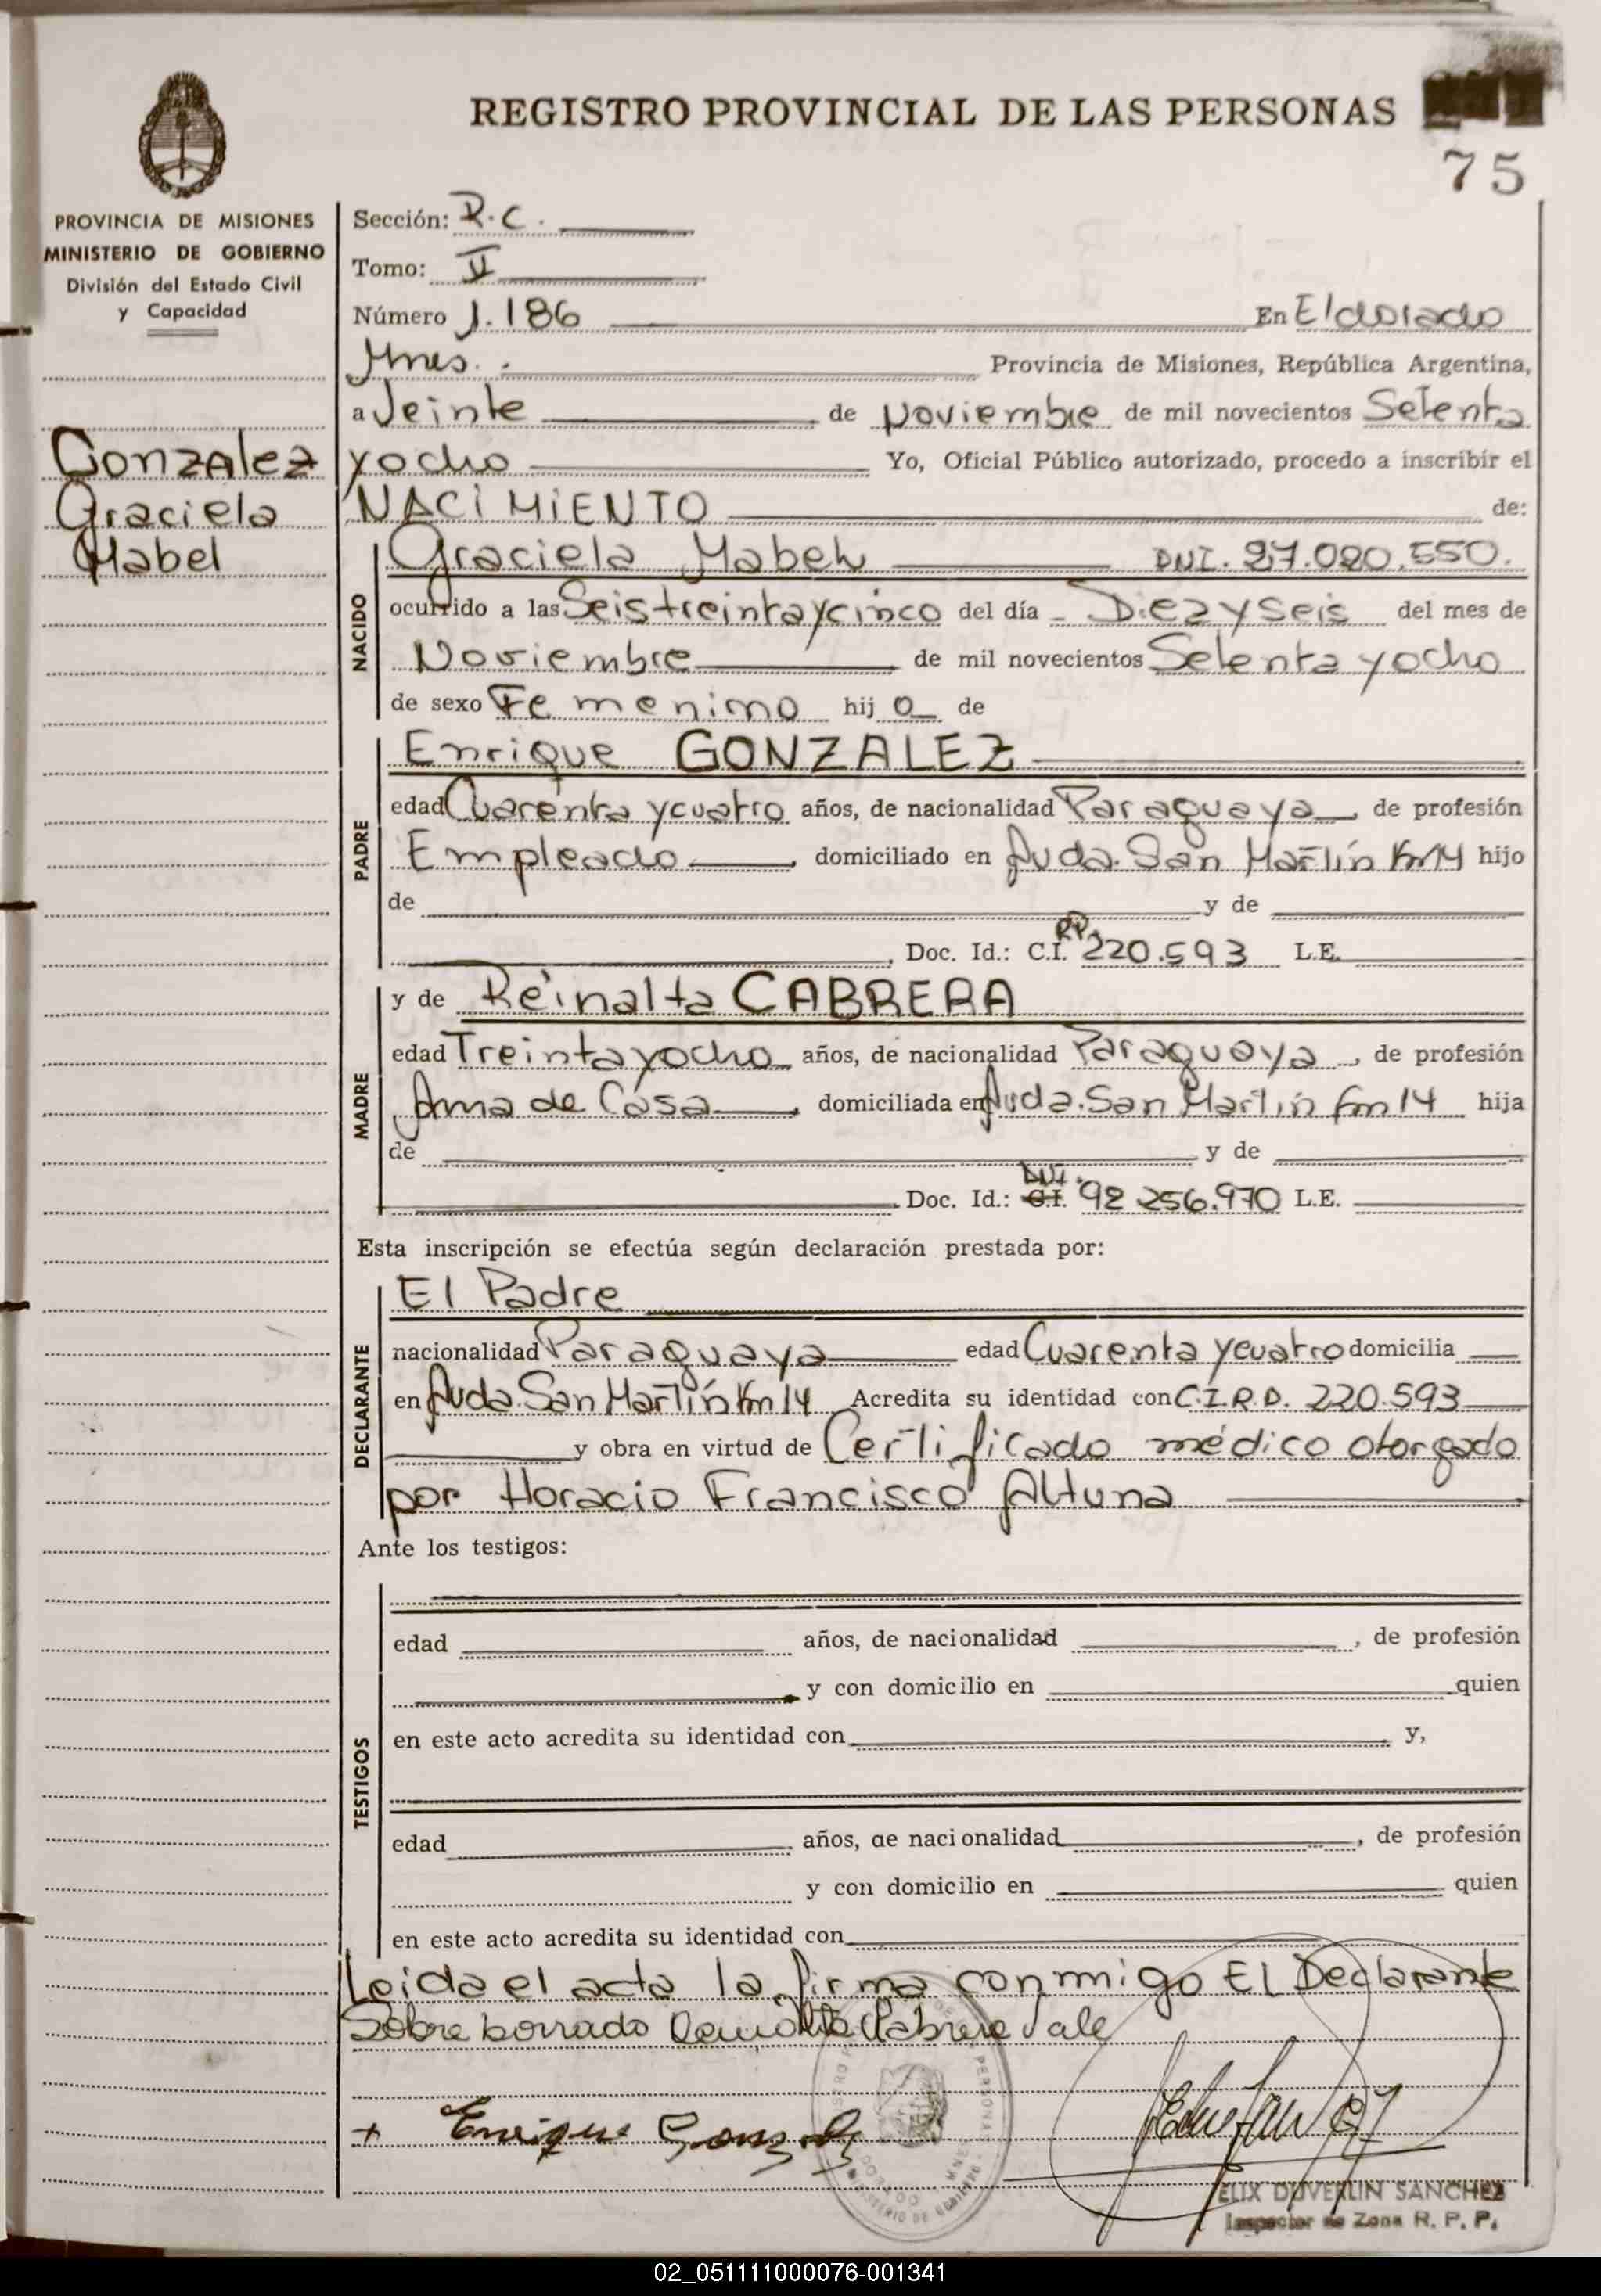 REGISTRO PROVINCIAL DE LAS PERSONAS
75
PROVINCIA DE MISIONES
MINISTERIO DE GOBIERNO
División del Estado Civil
y Capacidad
Gonzalez
Graciela
Mabel
Sección: R.C.
Tomo: V
Número 1.186 En Eldorado
Mnes. Provincia de Misiones, República Argentina,
a Veinte de Noviembre de mil novecientos Setenta
yocho Yo, Oficial Público autorizado, procedo a inscribir el
NACIMIENTO de:
NACIDO
Graciela Mabel DNI. 27.020.550.
ocurrido a las Seistreintaycinco del día Diezyseis del mes de
Noviembre de mil novecientos Setenta yocho
de sexo Femenino hij a de
PADRE
Enrique GONZALEZ
edad Cuarenta ycuatro años, de nacionalidad Paraguaya, de profesión
Empleado, domiciliado en Avda. San Martín Km14 hijo
de y de
Doc. Id.: C.I. RP. 220.593 L.E.
MADRE
y de Reinalta CABRERA
edad Treintayocho años, de nacionalidad Paraguaya, de profesión
Ama de Casa, domiciliada en Avda. San Martín Km 14 hija
de y de
Doc. Id.: C.I. DNI. 92 256.970 L.E.
Esta inscripción se efectúa según declaración prestada por:
DECLARANTE
El Padre
nacionalidad Paraguaya edad Cuarenta ycuatro domicilia
en Avda. San Martín Km 14 Acredita su identidad con C.I.R.P. 220.593
y obra en virtud de Certificado médico otorgado
por Horacio Francisco Altuna
Ante los testigos:
TESTIGOS
edad años, de nacionalidad, de profesión
y con domicilio en quien
en este acto acredita su identidad con y,
edad años, de nacionalidad, de profesión
y con domicilio en quien
en este acto acredita su identidad con
Leida el acta la firma conmigo El Declarante
Sobre borrado Reinalta Cabrera Vale
+ Enrique Gonzalez
FELIX DUVERLIN SANCHEZ
Inspector de Zona R. P. P.
02_051111000076-001341